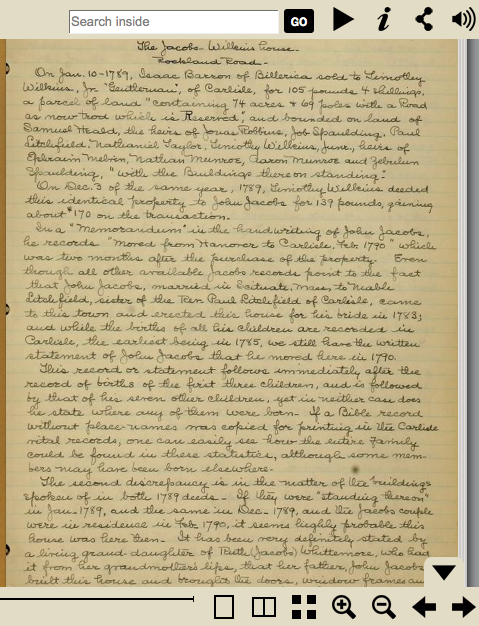 Search inside
GO
The Jacobs-Wilkins house.
Rockland Road.
On Jan. 10-1789, Isaac Barron of Billerica sold to Timothy
Wilkins, Jr. "Gentleman", of Carlisle, for 105 pounds 4 shillings,
a parcel of land "containing 74 acres & 69 poles with a Road
as now trod which is Reserved", and bounded on land of
Samuel Heald, the heirs of Jonas Robbins, Job Spaulding, Paul
Litchfield, Nathaniel Taylor, Timothy Wilkins, Junr., heirs of
Ephraim Melvin, Nathan Munroe, Aaron Munroe and Zebulun
Spaulding, "with the Buildings thereon standing."
On Dec. 3 of the same year, 1789, Timothy Wilkins deeded
this identical property to John Jacobs for 139 pounds, gaining
about $170 on the transaction.
In a "Memorandum" in the handwriting of John Jacobs,
he records "moved from Hanover to Carlisle, Feb. 1790" which
was two months after the purchase of the property. Even
though all other available Jacobs records point to the fact
that John Jacobs, married in Scituate, Mass, to
Litchfield, sister of the Rev. Paul Litchfield of Carlisle, came
to this town and erected this house for his bride in 1783;
and while the births of all his children are recorded in
Carlisle, the earliest being in 1785, we still have the written
statement of John Jacobs that he moved here in 1790.
This record or statement follows immediately after the
record of births of the first three children, and is followed
by that of his seven other children, yet in neither case does
he state where any of them were born. If a Bible record
without place-names was copied for printing in the Carlisle
vital records, one can easily see how the entire family
could be found in these statistics, although some mem-
bers may have been born elsewhere.
The second discrepancy is in the matter of the "buildings"
spoken of in both 1789 deeds. If they were "standing thereon"
in Jan. 1789, and the same in Dec. 1789, and the Jacobs couple
were in residence in Feb. 1790, it seems highly probable this
house was here then. It has been very definitely stated by
a living grand-daughter of Ruth (Jacobs) Whittemore, who had
it from her grandmother's lips, that her father, John Jacobs
built this house and brought the doors, window frames an